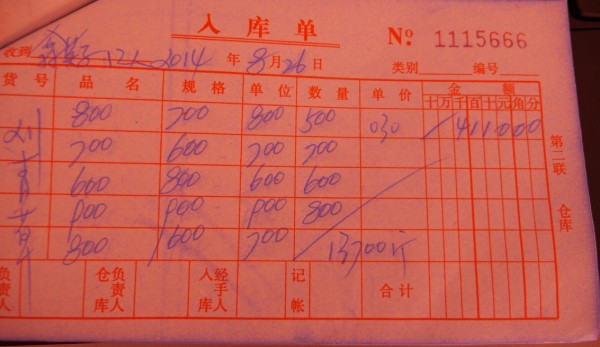 入库单
No. 1115666
收到 12人 2014 年 8 月 26 日 类别 编号
货号 品名 规格 单位 数量 单价 金额
十万千百十元角分
800 700 800 500 030 411000
700 600 700 700
600 800 600 600
900 900 900 800
800 600 700 13700斤
第二联 仓库
负责人 仓库负责人 入库经手人 记帐 合计